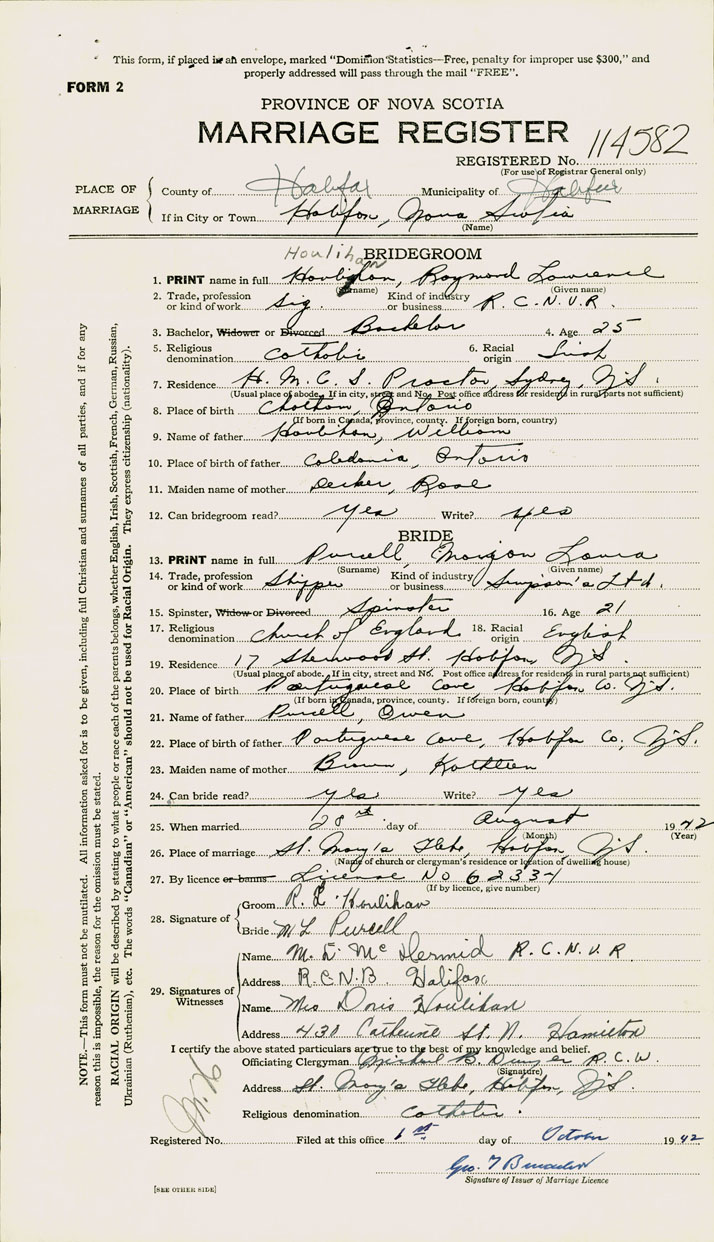 This form, if placed in an envelope, marked "Dominion Statistics—Free, penalty for improper use $300," and
properly addressed will pass through the mail "FREE".
FORM 2
PROVINCE OF NOVA SCOTIA
MARRIAGE REGISTER
114582
REGISTERED No.
(For use of Registrar General only)
PLACE OF MARRIAGE
County of Halifax Municipality of Halifax
If in City or Town Halifax, Nova Scotia
(Name)
Houlihan
BRIDEGROOM
1. PRINT name in full Houlihan, Raymond Lawrence
(Surname) (Given name)
2. Trade, profession or kind of work Sig. Kind of industry or business R.C.N.V.R.
3. Bachelor, Widower or Divorced Bachelor 4. Age 25
5. Religious denomination Catholic 6. Racial origin Irish
7. Residence H.M.C.S. Protector, Sydney, N.S.
(Usual place of abode. If in city, street and No. Post office address for residents in rural parts not sufficient)
8. Place of birth Chatham, Ontario
(If born in Canada, province, county. If foreign born, country)
9. Name of father Houlihan, William
10. Place of birth of father Caledonia, Ontario
11. Maiden name of mother Decker, Rose
12. Can bridegroom read? Yes Write? Yes
BRIDE
13. PRINT name in full Purcell, Marion Laura
(Surname) (Given name)
14. Trade, profession or kind of work Shipper Kind of industry or business Simpson's Ltd.
15. Spinster, Widow or Divorced Spinster 16. Age 21
17. Religious denomination Church of England 18. Racial origin English
19. Residence 17 Sherwood St. Halifax N.S.
(Usual place of abode. If in city, street and No. Post office address for residents in rural parts not sufficient)
20. Place of birth Portuguese Cove, Halifax Co. N.S.
(If born in Canada, province, county. If foreign born, country)
21. Name of father Purcell, Owen
22. Place of birth of father Portuguese Cove, Halifax Co, N.S.
23. Maiden name of mother Brown, Kathleen
24. Can bride read? Yes Write? Yes
25. When married 28th day of August 1942
(Month) (Year)
26. Place of marriage St. Mary's Glebe, Halifax, N.S.
(Name of church or clergyman's residence or location of dwelling house)
27. By licence or banns License No 62334
(If by licence, give number)
28. Signature of
Groom R. L. Houlihan
Bride M L Purcell
29. Signatures of Witnesses
Name M. E. McDermid R.C.N.V.R
Address R.C.N.B. Halifax
Name Mrs Doris Houlihan
Address 430 Catherine St. N. Hamilton
I certify the above stated particulars are true to the best of my knowledge and belief.
Officiating Clergyman Michael B.
(Signature)
Address St. Mary's Glebe, Halifax, N.S.
Religious denomination Catholic.
Registered No. Filed at this office 1st day of October 1942
Geo. F
Signature of Issuer of Marriage Licence
[SEE OTHER SIDE]
NOTE.—This form must not be mutilated. All information asked for is to be given, including full Christian and surnames of all parties, and if for any
reason this is impossible, the reason for the omission must be stated.
RACIAL ORIGIN will be described by stating to what people or race each of the parents belongs, whether English, Irish, Scottish, French, German, Russian,
Ukrainian (Ruthenian), etc. The words "Canadian" or "American" should not be used for Racial Origin. They express citizenship (nationality).